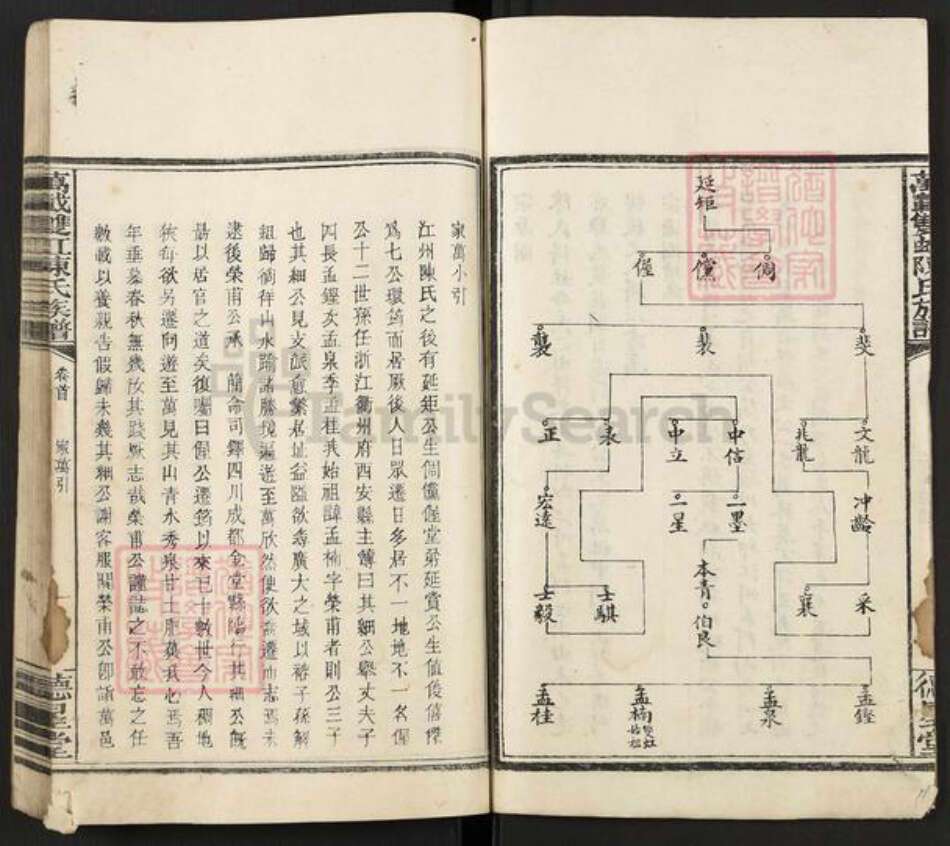 延矩
倜
儻
偓
斐
裴
襲
文龍
兆龍
中信
中立
永
正
冲齡
一墨
一星
宏遠
采
襄
本青
伯良
士騏
士毅
孟鏗
孟泉
孟楠
孟桂
萬載雙虹陳氏族譜
德星堂
家萬小引
江州陳氏之後有延矩公生倜儻偓堂弟延賞公生值俊僖傑
爲七公環筠而居厥後人日眾遷日多居不一地地不一名偓
公十二世孫任浙江衢州府西安縣主簿曰其細公舉丈夫子
四長孟鏗次孟泉季孟桂我始祖諱孟楠字榮甫者則公三子
也其細公見支派愈繁居址益隘欲尋廣大之域以裕子孫解
組歸徜徉山水踰諸勝境遍遊至萬欣然便欲喬遷而志焉未
逮後榮甫公承 簡命司鐸四川成都金堂縣臨行其細公慨
晶以居官之道矣復囑曰偓公遷筠以來已十數世今人稠地
狹每欲另遷向遊至萬見其山青水秀泉甘土肥莫我心焉吾
年垂暮春秋無幾汝其踐厥志哉榮甫公謹誌之不敢忘之任
數載以養親告假歸未幾其細公謝客服闋榮甫公卽詣萬邑
萬載雙虹陳氏族譜
卷首
家萬引
德星堂
FamilySearch